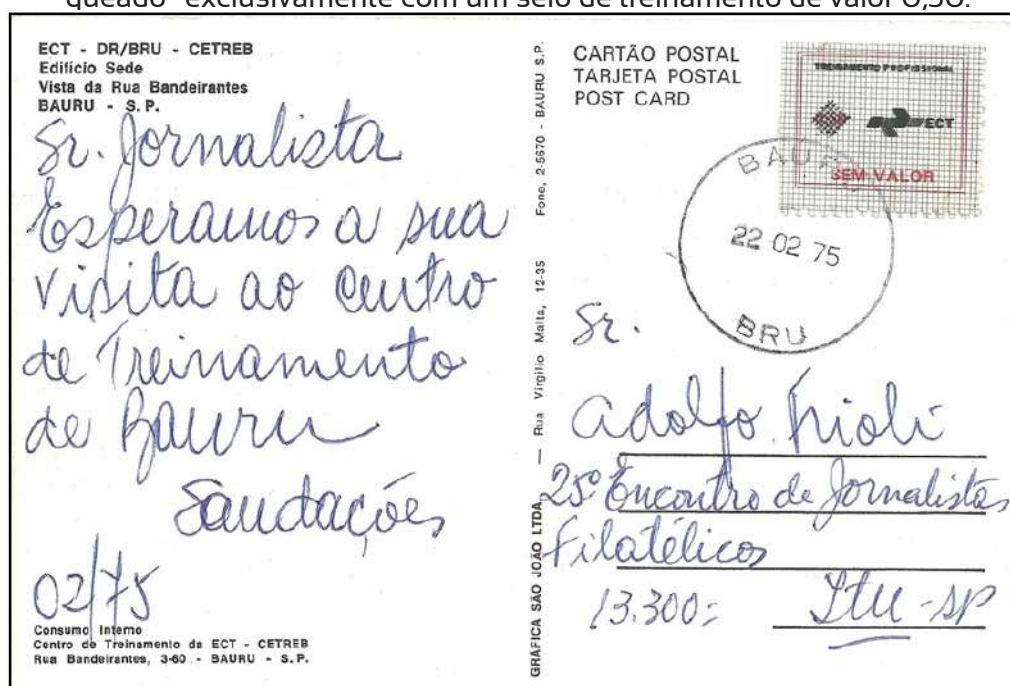 queado" exclusivamente com um selo de treinamento de valor 0,50.
ECT - DR/BRU - CETREB
Edifício Sede
Vista da Rua Bandeirantes
BAURU - S.P.
Sr. Jornalista
Esperamos a sua
visita ao Centro
de Treinamento
de Bauru
Saudações
02/75
Consumo Interno
Centro de Treinamento da ECT - CETREB
Rua Bandeirantes, 3-60 - BAURU - S.P.
GRÁFICA SÃO JOÃO LTDA. — Rua Virgílio Malta, 12-35 Fone, 2-5670 - BAURU S.P.
CARTÃO POSTAL
TARJETA POSTAL
POST CARD
TREINAMENTO PROFISSIONAL
ECT
SEM VALOR
BAURU
22 02 75
BRU
Sr.
Adolfo Frioli
25º Encontro de Jornalistas
Filatélicos
13.300= Itu - SP